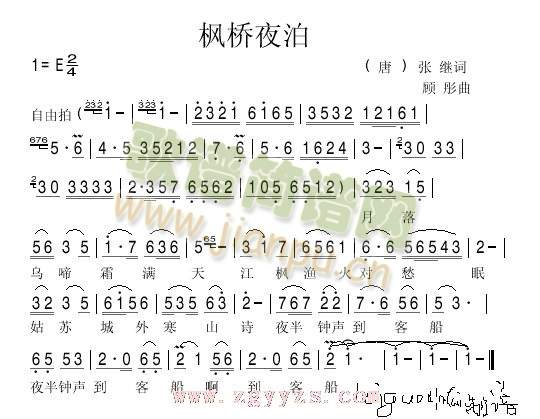 枫桥夜泊
1= E 2/4
（唐）张 继词
顾 彤曲
自由拍 ( 232 1 - | 232 1 - | 2321 6165 | 3532 12161 |
676 5· 6 | 4·5 35212 | 7· 6 | 5·6 1624 | 3 - | 2 30 33 |
2 30 3333 | 2·357 6562 | 105 6512 ) | 323 15 |
月 落
56 3 5 | 1·7 636 | 65 5 - | 3 1 7 | 6561 | 6·6 56543 | 2 - |
乌 啼 霜 满 天 江 枫 渔 火 对 愁 眠
353 2 | 6156 | 535 6 | 2 - | 767 22 | 77 67 | 2·3 56 |
姑 苏 城 外 寒 山 诗 夜半 钟声 到 客 船
65 53 | 2·0 | 65 65 | 2 1 56 | 2·0 65 | 2 1 · | 1 - | 1 · ‖
夜半钟声 到 客 船 啊 到 客 船
歌谱简谱网
www.jianpu.cn
www.zgyyzs.com